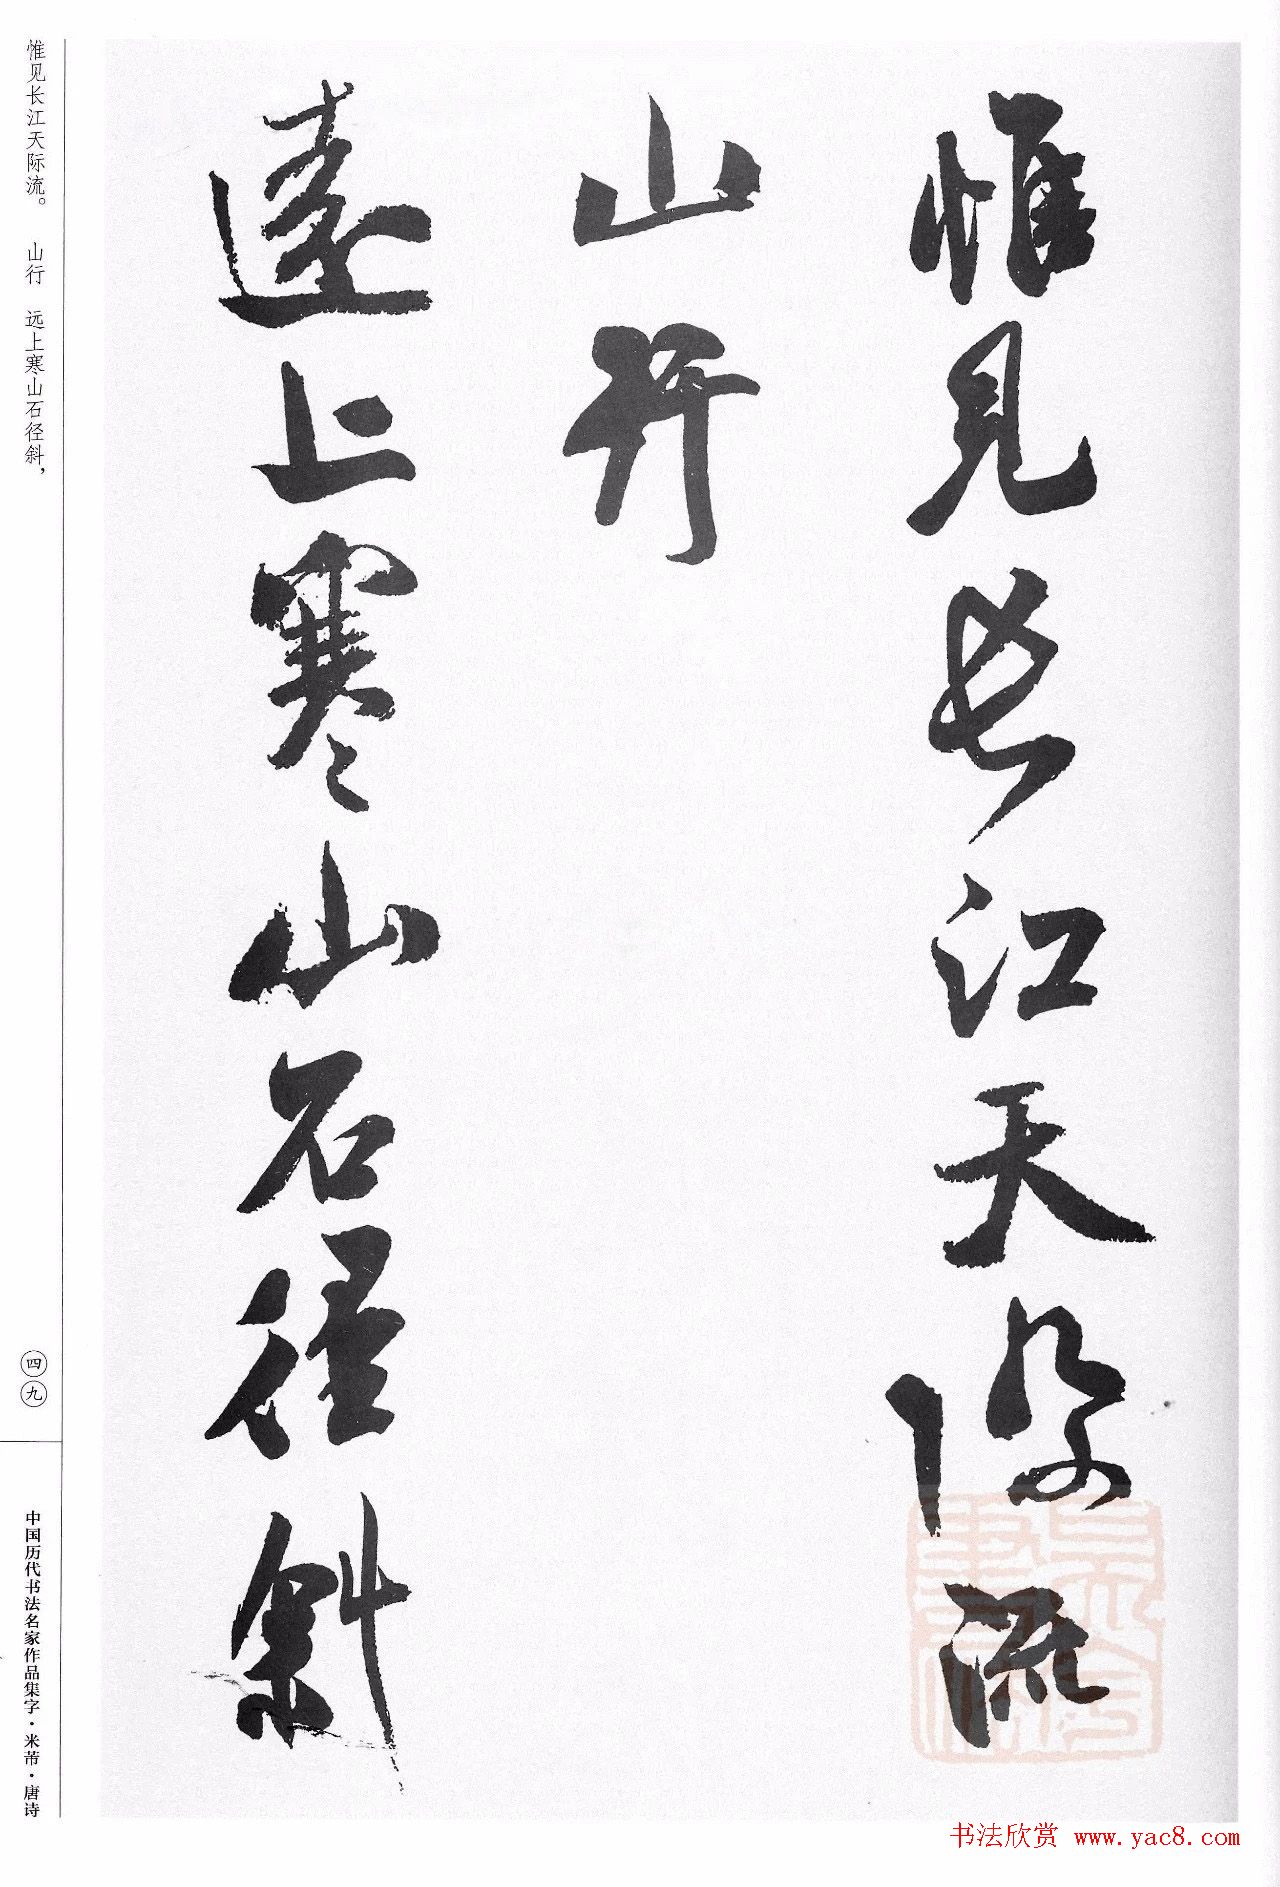 惟見長江天際流
山行
遠上寒山石徑斜
惟见长江天际流。 山行 远上寒山石径斜，
四九
中国历代书法名家作品集字·米芾·唐诗
书法欣赏 www.yac8.com